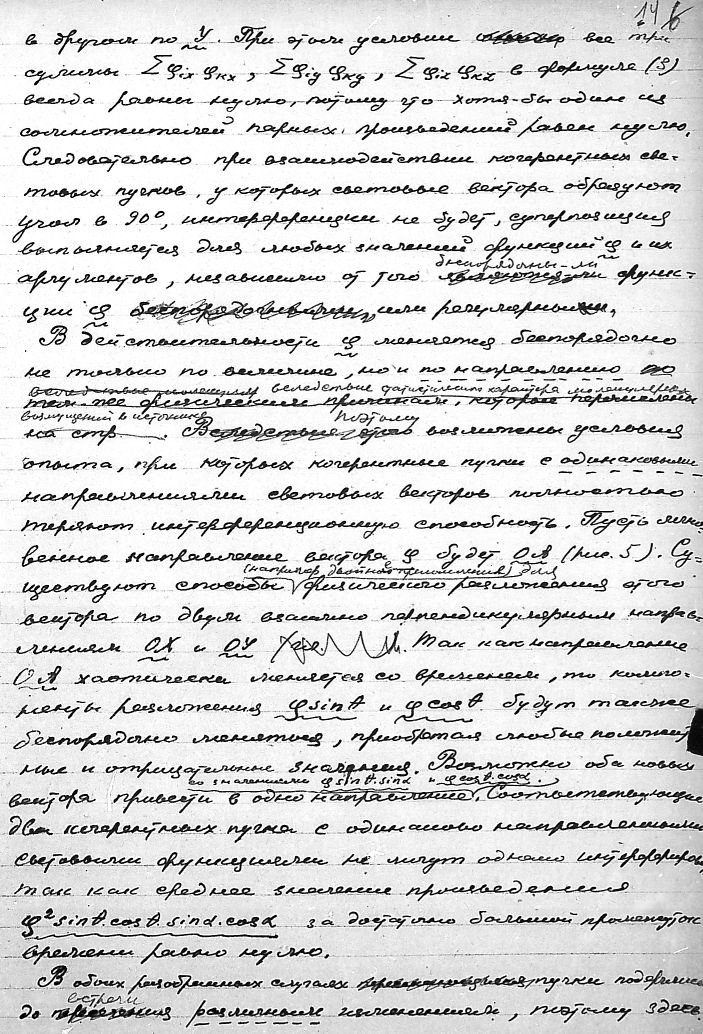 14 6
в другом по y. При этом условии все три
суммы Σφix φкx, Σφiy φкy, Σφiz φкz в формуле (9)
всегда равны нулю, потому что хотя-бы один из
сомножителей парных произведений равен нулю.
Следовательно при взаимодействии когерентных све-
товых пучков, у которых световые вектора образуют
угол в 90°, интерференции не будет, суперпозиция
выполняется для любых значений функций φ и их
беспорядочны-ли
аргументов, независимо от того функ-
ции φ или регулярны.
В действительности φ меняется беспорядочно
не только по величине, но и по направлению
вследствие статистического характера молекулярных
тем же физическим причинам, которые перечислены
возмущений в источнике Поэтому
на стр . Вследствие этого возможны условия
опыта, при которых когерентные пучки с одинаковыми
направлениями световых векторов полностью
теряют интерференционную способность. Пусть мгно-
венное направление вектора φ будет OA (рис. 5). Су-
(например двойное преломление) для
ществуют способы физического разложения этого
вектора по двум взаимно перпендикулярным направ-
лениям OX и OY. Так как направление
OA хаотически меняется со временем, то компо-
ненты разложения φsinθ и φcosθ будут также
беспорядочно меняться, приобретая любые положитель-
ные и отрицательные значения. Возможно оба новых
со значениями φsinθ.sinα и φcosθ.cosα.
вектора привести в одно направление. Соответствующие
два когерентных пучка с одинаково направленными
световыми функциями не могут однако интерферировать,
так как среднее значение произведения
φ²sinθ.cosθ.sinα.cosα за достаточно большой промежуток
времени равно нулю.
В обоих разобранных случаях пучки подверглись
встречи
до различным изменениям, поэтому здесь